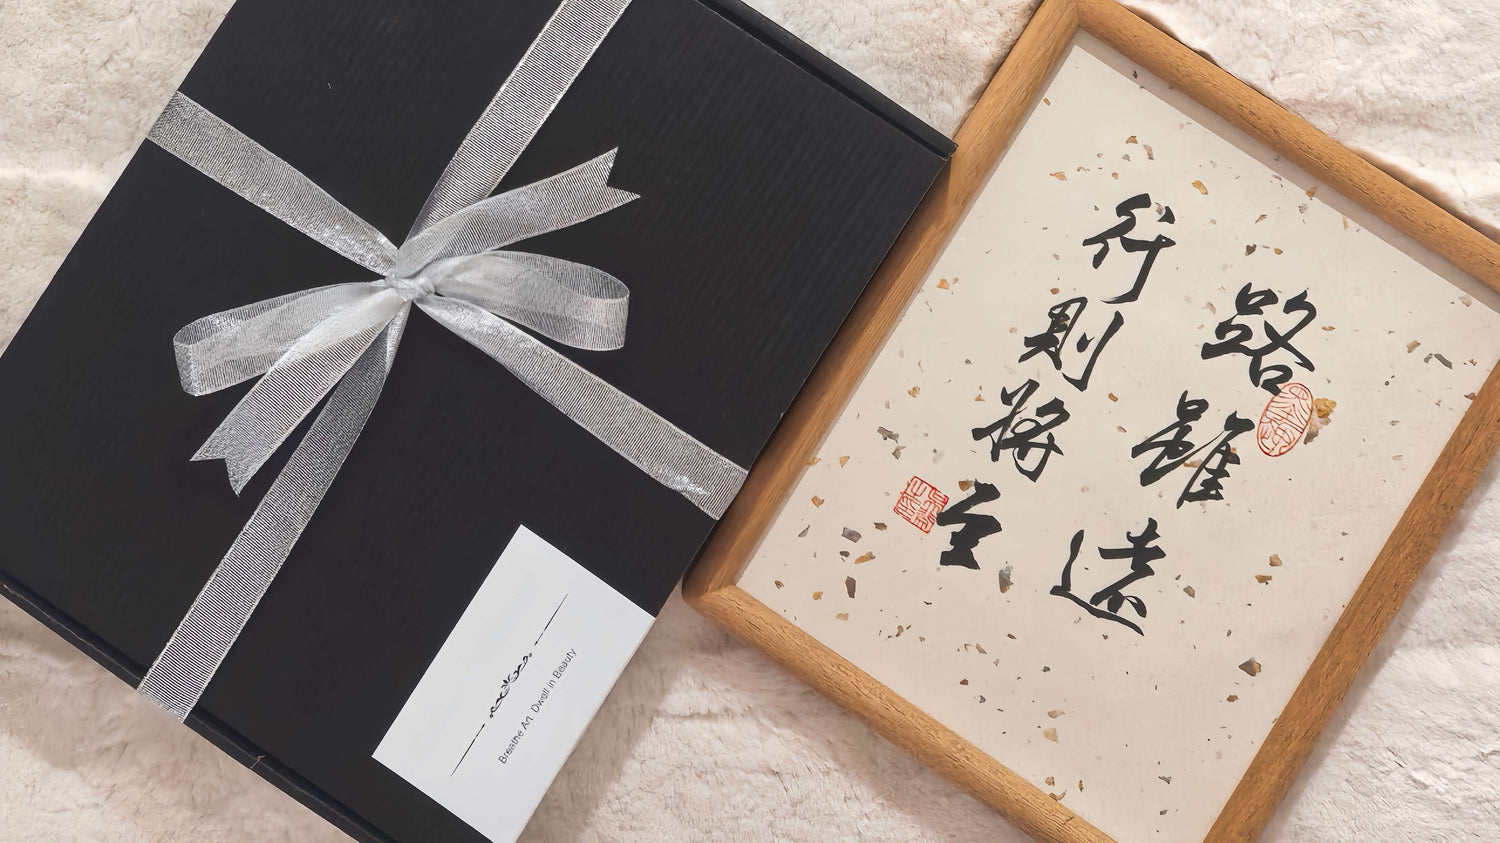 路雖遠
行則將至
Breathe Art. Dwell in Beauty